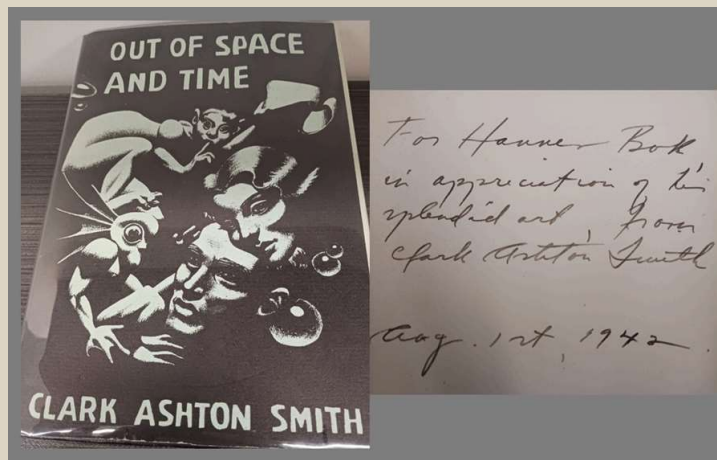 OUT OF SPACE
AND TIME
CLARK ASHTON SMITH
For Hannes Bok
in appreciation of his
splendid art, from
Clark Ashton Smith
Aug. 1st, 1942.